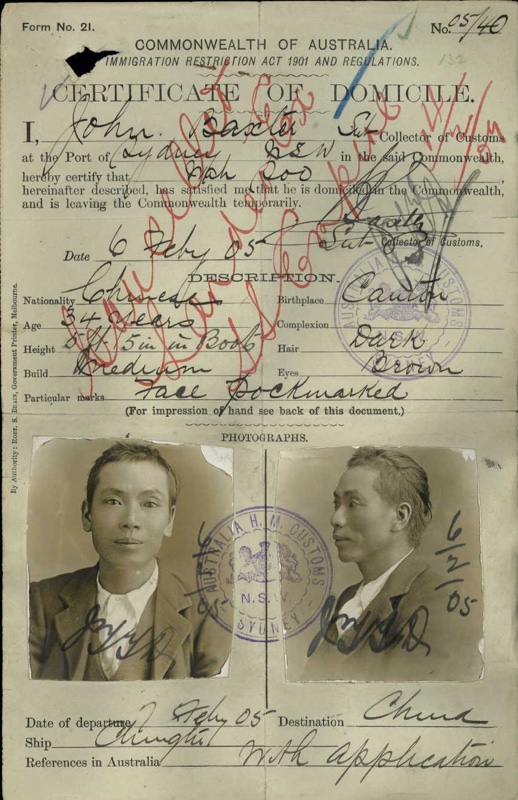 Form No. 21.
No. 05/40
132
COMMONWEALTH OF AUSTRALIA.
IMMIGRATION RESTRICTION ACT 1901 AND REGULATIONS.
CERTIFICATE OF DOMICILE.
I, John Baxter Sub Collector of Customs
at the Port of Sydney NSW in the said Commonwealth,
hereby certify that Ah Soo
hereinafter described, has satisfied me that he is domiciled in the Commonwealth,
and is leaving the Commonwealth temporarily.
J Baxter
Date 6 Feby 05 Sub Collector of Customs.
DESCRIPTION.
Nationality Chinese Birthplace Canton
Age 34 years Complexion
Height 5 ft 5 in in Boots Hair Dark
Build Medium Eyes Brown
Particular marks Face Pockmarked
(For impression of hand see back of this document.)
PHOTOGRAPHS.
AUSTRALIA H. M. CUSTOMS
N.S.W.
SYDNEY
6/2/05
6/2/05
Date of departure 7 Feby 05 Destination China
Ship Chingtu
References in Australia With application
By Authority: ROBT. S. BRAIN, Government Printer, Melbourne.
Cancelled